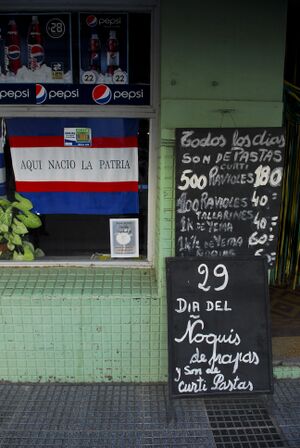 pepsi
28
22
22
pepsi
pepsi
AQUI NACIO LA PATRIA
Todos los dias
SON DE PASTAS
CURTI
500 RAVIOLES 180
100 RAVIOLES 40
TALLARINES
1K DE YEMA 40
DE YEMA 60
29
DIA DEL
Ñoquis
de papas
y son de
Curti Pastas